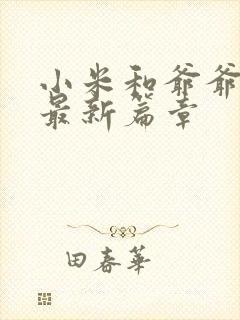 小米和爷爷
最新篇章
田春華